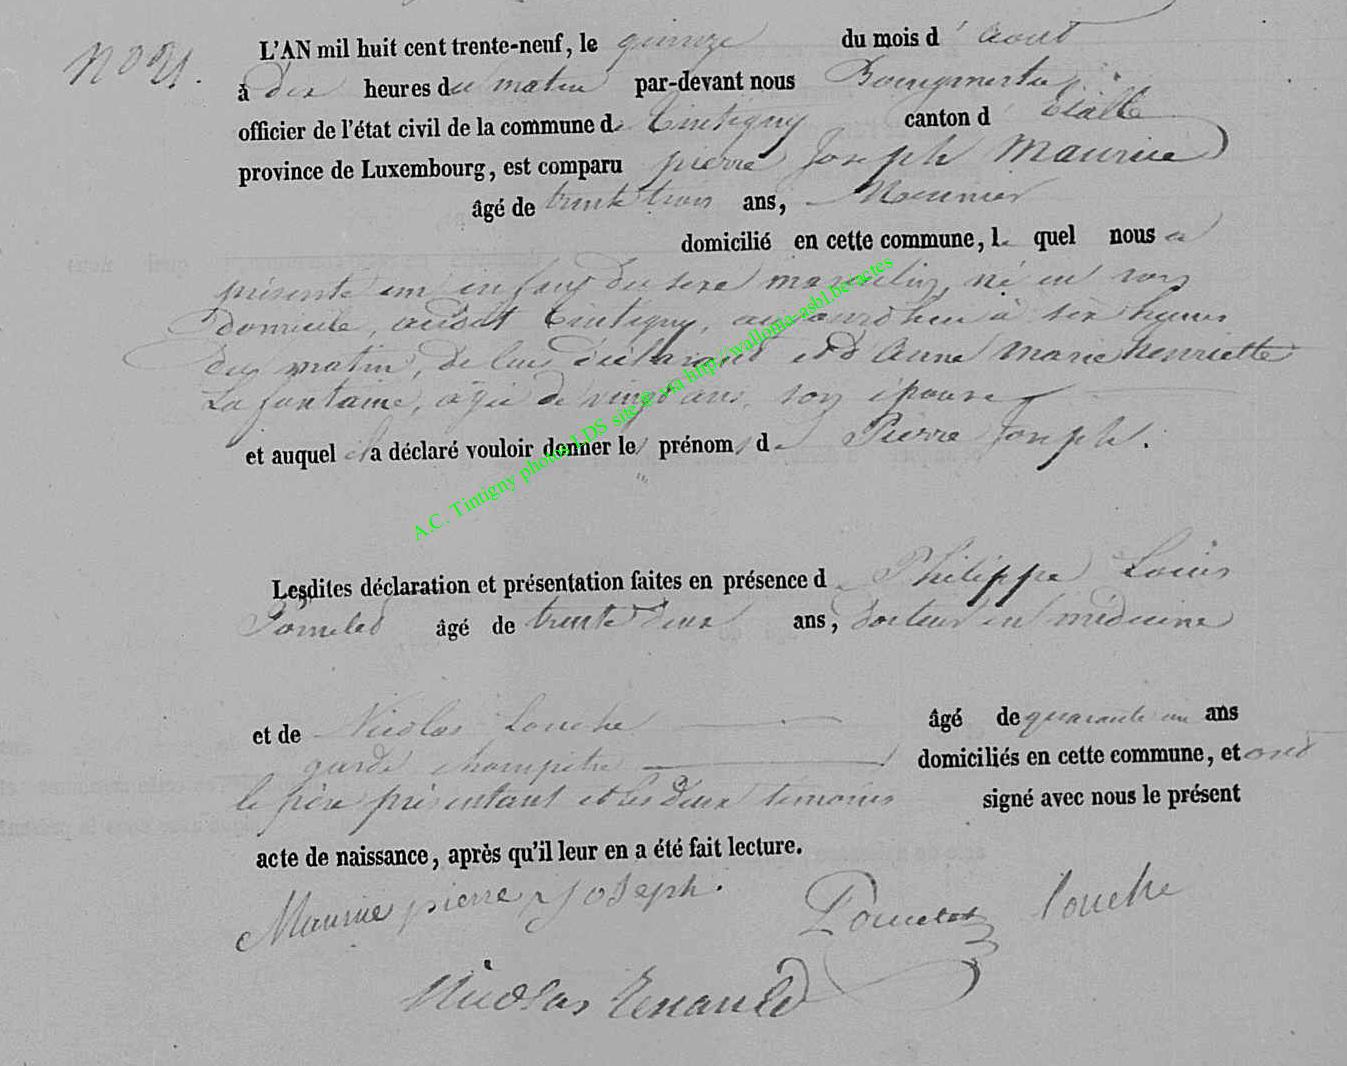 N° 21.
L'AN mil huit cent trente-neuf, le quinze du mois d'août
à dix heures du matin par-devant nous Bourgmestre
officier de l'état civil de la commune de Tintigny canton d'Etalle
province de Luxembourg, est comparu pierre Joseph Maurice
âgé de trente trois ans, Meunier
domicilié en cette commune, le quel nous a
présenté un enfant du sexe masculin, né en son
domicile audit Tintigny, aujourd'hui à six heures
du matin, de lui déclarant et d'Anne Marie henriette
La fontaine, agée de vingt ans, son épouse
et auquel il a déclaré vouloir donner les prénoms de Pierre Joseph.
A.C. Tintigny photos LDS site # via http//wallonia-asbl.be/actes
Lesdites déclaration et présentation faites en présence de Philippe Louis
âgé de trente deux ans, docteur en médecine
et de Nicolas Louche âgé de quarante un ans
garde champêtre domiciliés en cette commune, et ont
le père présentant et les deux témoins signé avec nous le présent
acte de naissance, après qu'il leur en a été fait lecture.
Maurice pierre Joseph. Louche
Nicolas